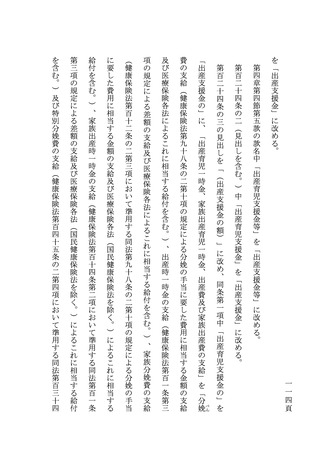 一一四頁
を「出産支援金」に改める。
第四章第四節第五款の款名中「出産育児支援金等」を「出産支援金等」に改める。
第百二十四条の二（見出しを含む。）中「出産育児支援金」を「出産支援金」に改める。
第百二十四条の三の見出しを「（出産支援金の額）」に改め、同条第一項中「出産育児支援金の」を
「出産支援金の」に、「出産育児一時金、家族出産育児一時金、出産費及び家族出産費の支給」を「分娩
費の支給（健康保険法第九十八条の二第十項の規定による分娩の手当に要した費用に相当する金額の支給
及び医療保険各法によるこれに相当する給付を含む。）、出産時一時金の支給（健康保険法第百一条第三
項の規定による差額の支給及び医療保険各法によるこれに相当する給付を含む。）、家族分娩費の支給
（健康保険法第百十二条の二第三項において準用する同法第九十八条の二第十項の規定による分娩の手当
に要した費用に相当する金額の支給及び医療保険各法（国民健康保険法を除く。）によるこれに相当する
給付を含む。）、家族出産時一時金の支給（健康保険法第百十四条第二項において準用する同法第百一条
第三項の規定による差額の支給及び医療保険各法（国民健康保険法を除く。）によるこれに相当する給付
を含む。）及び特別分娩費の支給（健康保険法第百四十五条の二第四項において準用する同法第百三十四